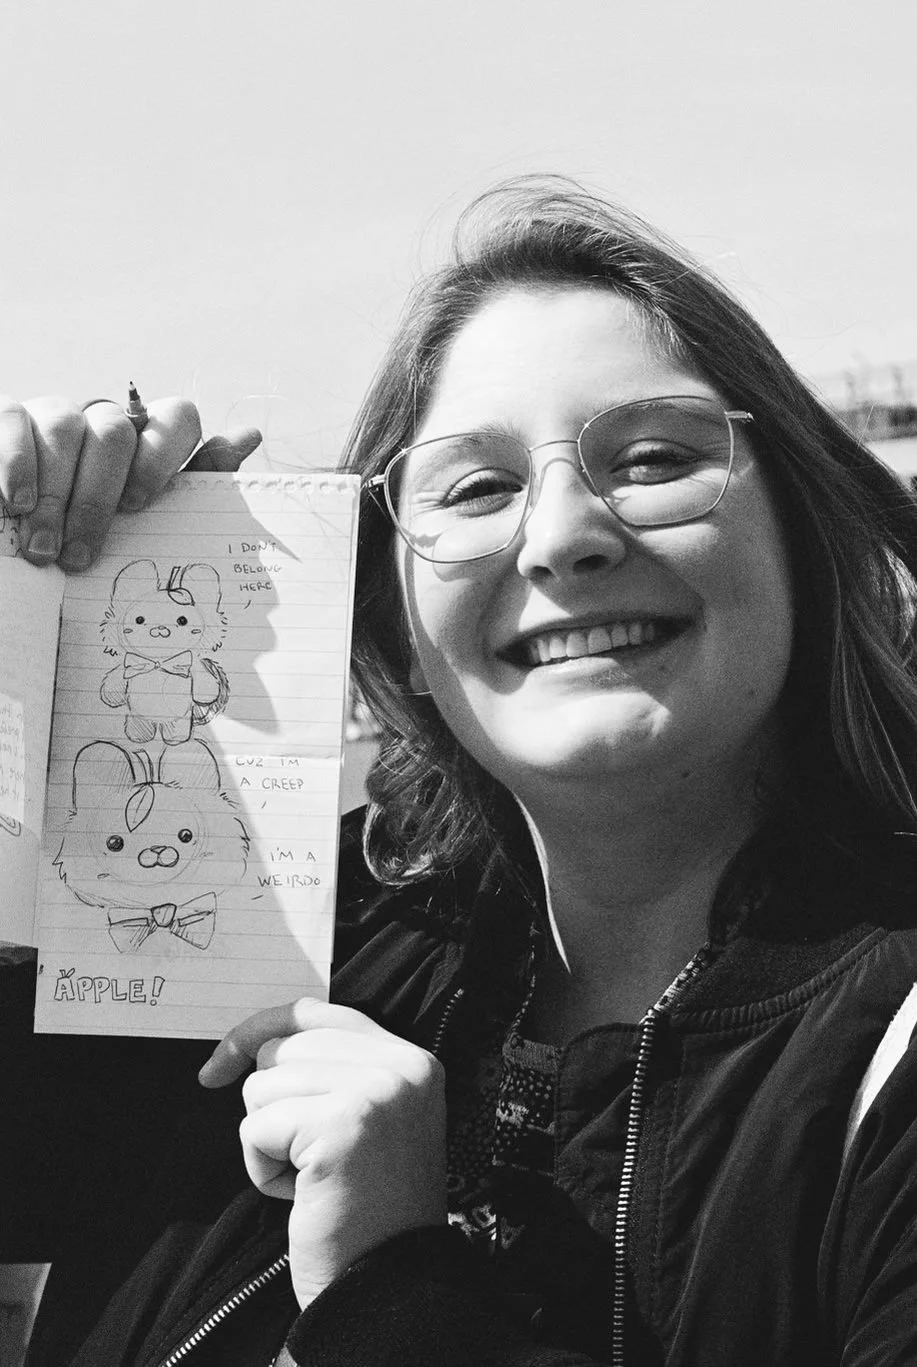 I DON'T
BELONG
HERE
CUZ I'M
A CREEP
I'M A
WEIRDO
ÄPPLE!